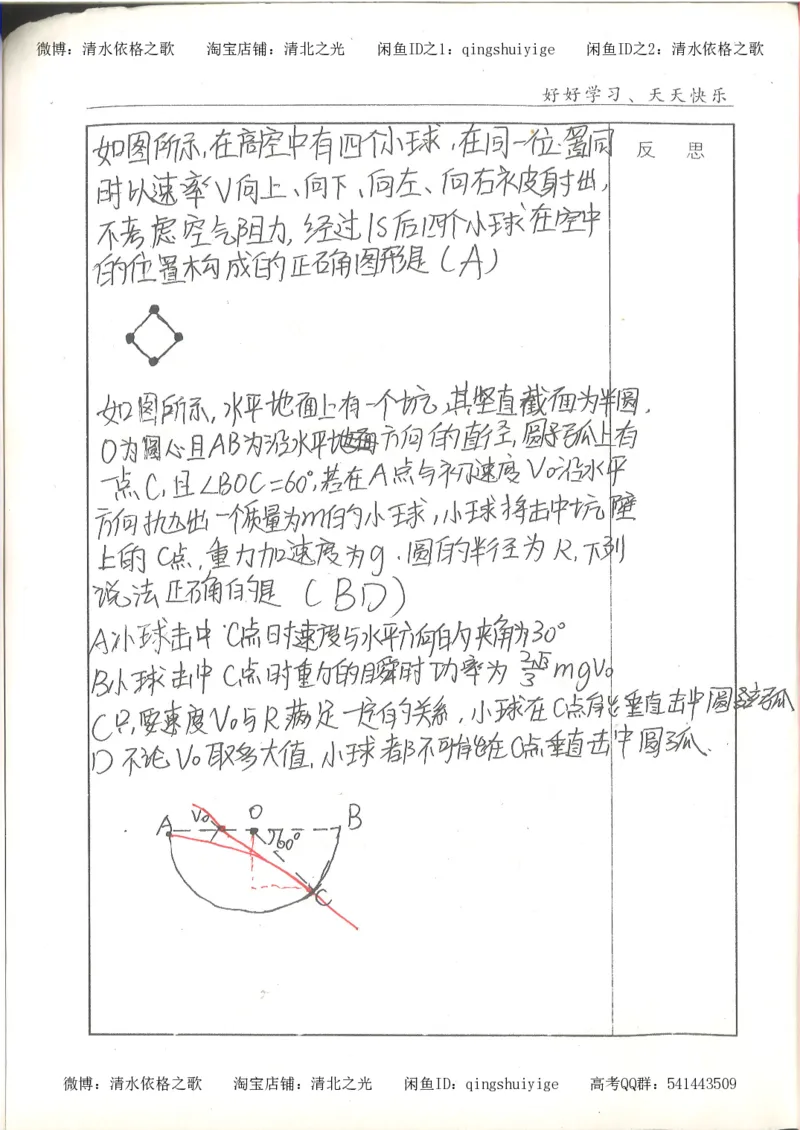 微博：清水依格之歌 淘宝店铺：清北之光 闲鱼ID之1：qingshuiyige 闲鱼ID之2：清水依格之歌
好好学习、天天快乐
反 思
如图所示,在高空中有四个小球,在同一位置同
时以速率V向上、向下、向左、向右被射出,
不考虑空气阻力,经过1S后四个小球在空中
的位置构成的正确图形是(A)
如图所示,水平地面上有一个坑,其竖直截面为半圆,
O为圆心且AB为沿水平方向的直径,圆弧上有
一点C,且∠BOC=60°,若在A点与初速度V₀沿水平
方向抛出一个质量为m的小球,小球将击中坑壁
上的C点,重力加速度为g.圆的半径为R,下列
说法正确的是 (BD)
A小球击中C点时速度与水平方向的夹角为30°
B小球击中C点时重力的瞬时功率为 2√3/3 mgV₀
C只要速度V₀与R满足一定的关系,小球在C点能垂直击中圆弧
D不论V₀取多大值,小球都不可能在C点垂直击中圆弧.
A V₀ O B
60°
C
微博：清水依格之歌 淘宝店铺：清北之光 闲鱼ID：qingshuiyige 高考QQ群：541443509